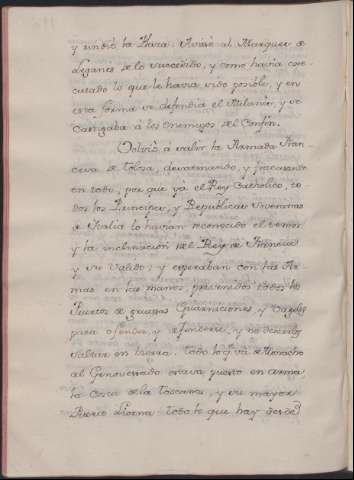 y rindió la Plaza. Avisó al Marques de
Leganes de lo succedido, y como havia exe-
cutado lo que le havia sido posible, y en
esta forma se defendia el Milanés, y se
castigaba á los enemigos del Confin.
Volvió á salir la Armada Fran-
cesa de Tolon, desarmando, y fracasando
en todo, por que yá el Rey Catholico, to-
dos los Principes, y Republicas Soveranas
de Italia lo havian reconocido el temor
y la inclinacion del Rey de Francia
y su Valido; y esperaban con las Ar-
mas en las manos, prevenidos todos los
Puertos de gruesas Guarniciones, y Vageles
para ofender, y defenderse, y no dexarles
saltar en tierra. Todo lo q. va de Monacho
al Genovesado estava puesto en arma,
la Costa de la Toscana, y su mayor
Puerto Liorna. Todo lo que hay desde